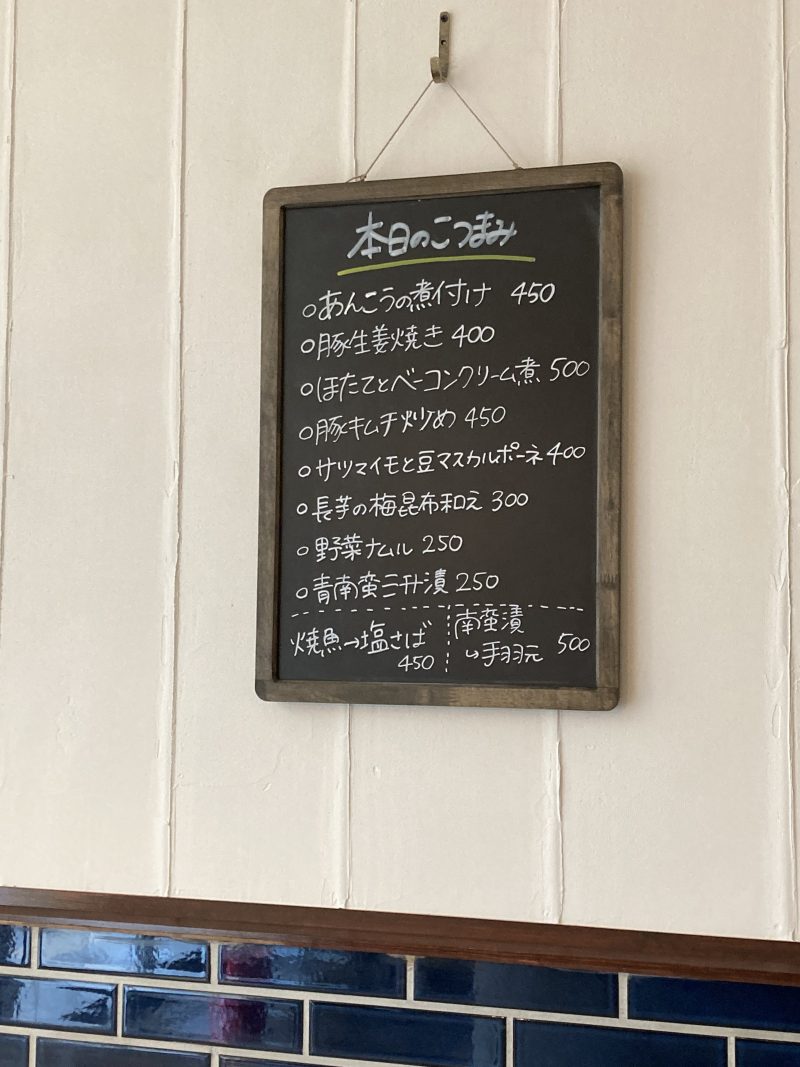 本日のこつまみ
○あんこうの煮付け 450
○豚生姜焼き 400
○ほたてとベーコンクリーム煮 500
○豚キムチ炒め 450
○サツマイモと豆マスカルポーネ 400
○長芋の梅昆布和え 300
○野菜ナムル 250
○青南蛮三升漬 250
焼魚→塩さば
450
南蛮漬
↳手羽元 500